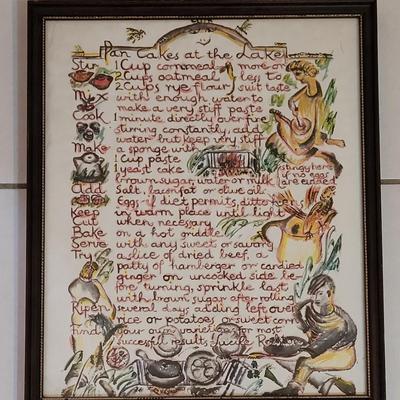 Pan Cakes at the Lake
Stir 1 Cup cornmeal more or
2 Cups oatmeal less to
2 Cups rye flour suit taste
Mix with enough water to
make a very stiff paste
Cook 1 minute directly over fire
stirring constantly, add
water but keep very stiff
Make a sponge with
1 Cup paste
1 yeast cake
brown sugar, water or milk
stingy here
if no eggs
are added
Add Salt, bacon fat or olive oil
Eggs if diet permits, ditto
Keep in warm place until light
Cut when necessary
Bake on a hot griddle
Serve with any sweet or savory
Try a slice of dried beef, a
patty of hamberger or candied
ginger on uncooked side be
fore turning, sprinkle last
with brown sugar after rolling
Ripen several days adding left over
rice or potatoes or sweet corn
find your own varieties for most
successful results Lucile